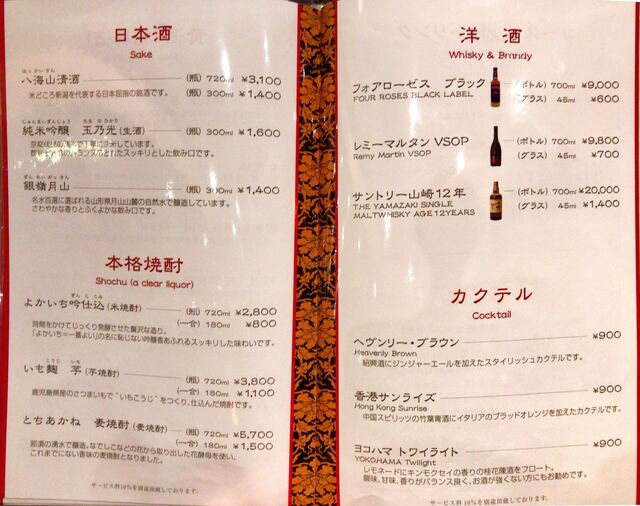 日本酒
Sake
はっ かい さん
八海山清酒 (瓶) 720ml ¥3,100
米どころ新潟を代表する日本屈指の銘酒です。 (瓶) 300ml ¥1,400
じゅんまいぎんじょう たま の ひかり
純米吟醸 玉乃光 (生酒) (瓶) 300ml ¥1,600
スッキリとした飲み口です。
ぎん れい がっ さん
銀嶺月山 (瓶) 300ml ¥1,400
名水百選に選ばれる山形県月山山麓の自然水で醸造しています。
さわやかな香りとふくよかな飲み口です。
本格焼酎
Shochu (a clear liquor)
ぎん じ こみ
よかいち吟仕込 (米焼酎) (瓶) 720ml ¥2,800
(一合) 180ml ¥800
時間をかけてじっくり発酵させた贅沢な造り。
「よかいち=一番よい」の名に恥じない吟醸香あふれるスッキリした味わいです。
こうじ いも
いも麹 芋 (芋焼酎) (瓶) 720ml ¥3,800
(一合) 180ml ¥1,100
鹿児島県産のさつまいもで“いもこうじ”をつくり、仕込んだ焼酎です。
とちあかね 麦焼酎 (麦焼酎) (瓶) 720ml ¥5,700
(一合) 180ml ¥1,500
那須の湧水で醸造。なでしこなどの花から取り出した花酵母を使い、
これまでにない香味の麦焼酎となりました。
サービス料10%を別途頂戴しております。
洋酒
Whisky & Brandy
フォアローゼス ブラック (ボトル) 700ml ¥9,000
FOUR ROSES BLACK LABEL (グラス) 45ml ¥600
レミーマルタン VSOP (ボトル) 700ml ¥9,800
Remy Martin VSOP (グラス) 45ml ¥700
サントリー山崎12年 (ボトル) 700ml ¥20,000
THE YAMAZAKI SINGLE (グラス) 45ml ¥1,400
MALTWHISKY AGE12YEARS
カクテル
Cocktail
ヘヴンリー・ブラウン ¥900
Heavenly Brown
紹興酒にジンジャーエールを加えたスタイリッシュカクテルです。
香港サンライズ ¥900
Hong Kong Sunrise
中国スピリッツの竹葉青酒にイタリアのブラッドオレンジを加えたカクテルです。
ヨコハマ トワイライト ¥900
YOKOHAMA Twilight
レモネードにキンモクセイの香りの桂花陳酒をフロート。
酸味、甘味、香りがバランス良く、お酒が強くない方にもお勧めです。
サービス料10%を別途頂戴しております。